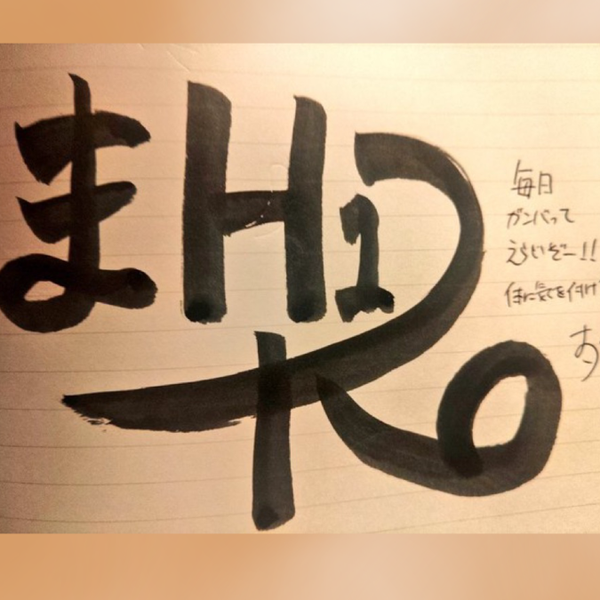 まHIRO
毎日
ガンバって
えらいぞー!!
体に気を付け